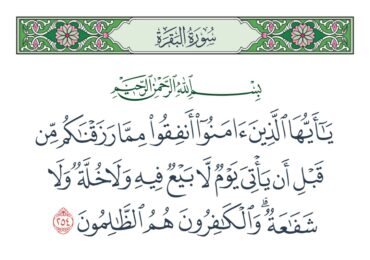 سُورَةُ الْبَقَرَةِ
بِسْمِ اللَّهِ الرَّحْمَٰنِ الرَّحِيمِ
يَٰٓأَيُّهَا ٱلَّذِينَ ءَامَنُوٓا۟ أَنفِقُوا۟ مِمَّا رَزَقْنَٰكُم مِّن
قَبْلِ أَن يَأْتِىَ يَوْمٌ لَّا بَيْعٌ فِيهِ وَلَا خُلَّةٌ وَلَا
شَفَٰعَةٌ ۗ وَٱلْكَٰفِرُونَ هُمُ ٱلظَّٰلِمُونَ ٢٥٤